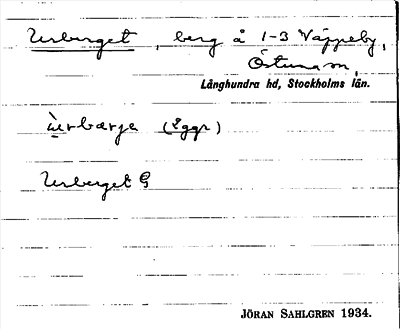 Urberget, berg å 1-3 Väppeby,
Östuna sn,
Långhundra hd, Stockholms län.
ùrbærje (Äggr)
Urberget G
JÖRAN SAHLGREN 1934.